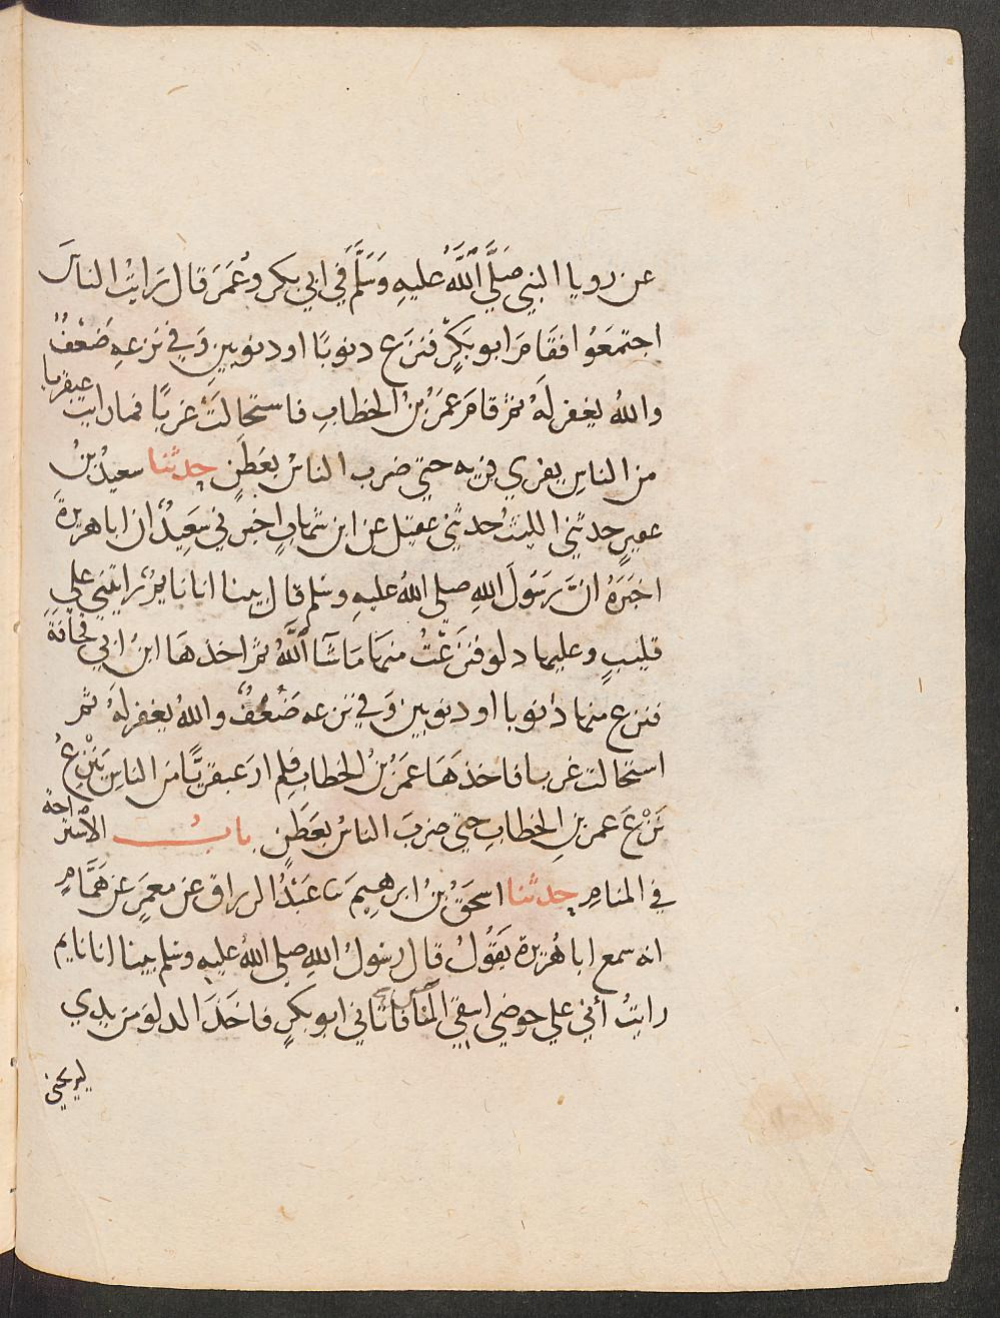 عن رويا النبي صَلَّي اللَّهُ عليهِ وَسَلَّمَ في ابي بكر وعُمَرَ قال رَايتُ الناسَ
اجتمَعُوا فقَامَ ابو بَكرٍ فنزَع دنوبًا او دنوبينِ وَفي نزعهِ ضَعْفٌ
واللهُ يغفر لَهُ ثم قامَ عمَرُ بنُ الخطابِ فاستحالتْ غربًا فما رايت عبقريا
من الناسِ يفري فريه حتي ضرب الناسُ بعَطَنٍ حدثنا سعيدُ بنُ
عفيرٍ حدثني الليثُ حدثني عقيل عن ابن شهابٍ اخبرني سَعِيدٌ ان ابا هريرةَ
اخبَرَهُ انَّ رَسُولَ اللهِ صلي اللهُ عليهِ وسلم قال بينا انا نايمٌ رايتني علي
قليبٍ وعليها دلو فنَزَعْتُ منهَا مَا شَآ اللَّهُ ثم اخذهَا ابنُ ابي قحافَةَ
فنزع منها ذنوبا او دنوبين وَفي نزعه ضَعْفٌ واللهُ يغفر لَهُ ثم
استحالت غربا فاخذهَا عمَرُ بنُ الخطاب فلم ارَ عبقريًّا من الناسِ يَنْزِعُ
نَزْعَ عمر بنِ الخطابِ حتي ضربَ الناسُ بعَطَنٍ بابُ الاسْتراحة
في المنامِ حدثنا اسحَقُ بنُ ابرهيمَ نا عَبْدُ الرزاق عن معمَرٍ عن هَمَّامٍ
انه سمع ابا هُرَيرة يَقُولُ قال رسُولُ اللهِ صلي اللهُ عليهِ وسلم بينا انا نايم
رايتُ أني علي حوضي اسقي الناس فاتَاني ابو بكرٍ فاخَذَ الدلوَ من يدي
ليريحني